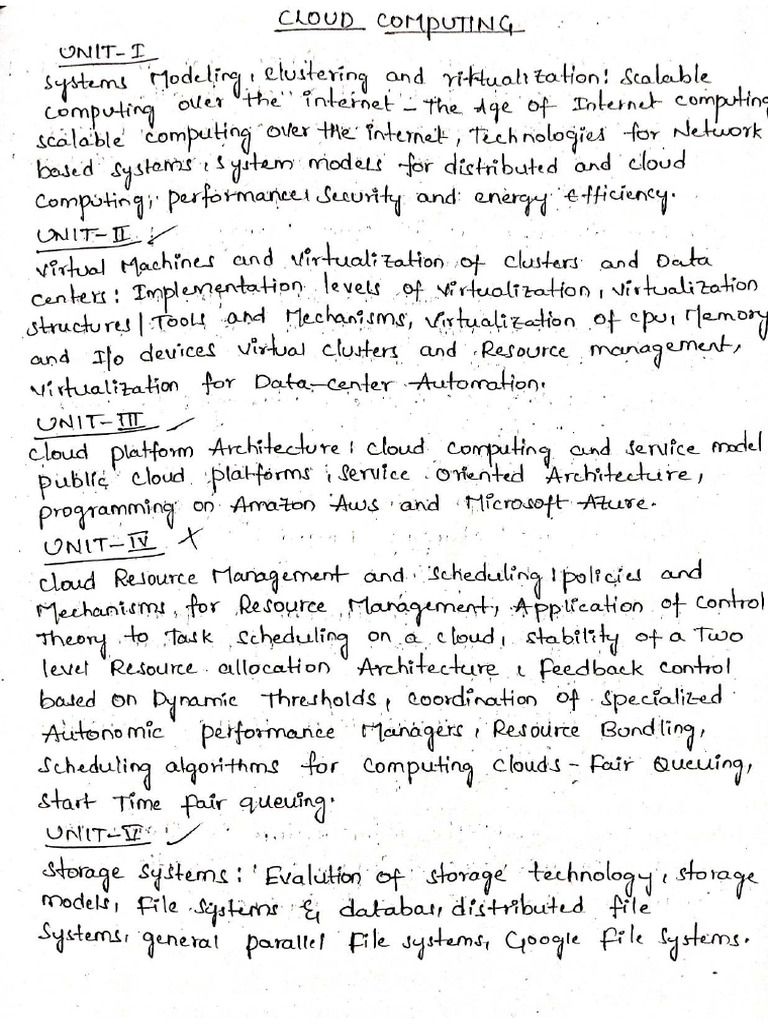 CLOUD COMPUTING
UNIT-I
Systems Modeling, clustering and virtualization: Scalable
computing over the internet - The Age of Internet computing
scalable computing over the internet, Technologies for Network
based systems, system models for distributed and cloud
computing, performance, security and energy efficiency.
UNIT-II ✓
Virtual Machines and Virtualization of clusters and Data
centers: Implementation levels of virtualization, virtualization
structures/Tools and Mechanisms, virtualization of cpu, Memory
and I/o devices virtual clusters and Resource management,
virtualization for Data-center Automation.
UNIT-III ✓
cloud platform Architecture: cloud computing and service model
public cloud platforms, service oriented Architecture,
programming on Amazon Aws and Microsoft Azure.
UNIT-IV ✗
cloud Resource Management and scheduling: policies and
Mechanisms for Resource Management, Application of control
Theory to Task scheduling on a cloud, stability of a Two
level Resource allocation Architecture, feedback control
based on Dynamic Thresholds, coordination of specialized
Autonomic performance Managers, Resource Bundling,
scheduling algorithms for computing clouds - Fair Queuing,
Start Time fair queuing.
UNIT-V ✓
Storage systems: Evalution of storage technology, storage
models, file systems & databas, distributed file
systems, general parallel file systems, Google file systems.